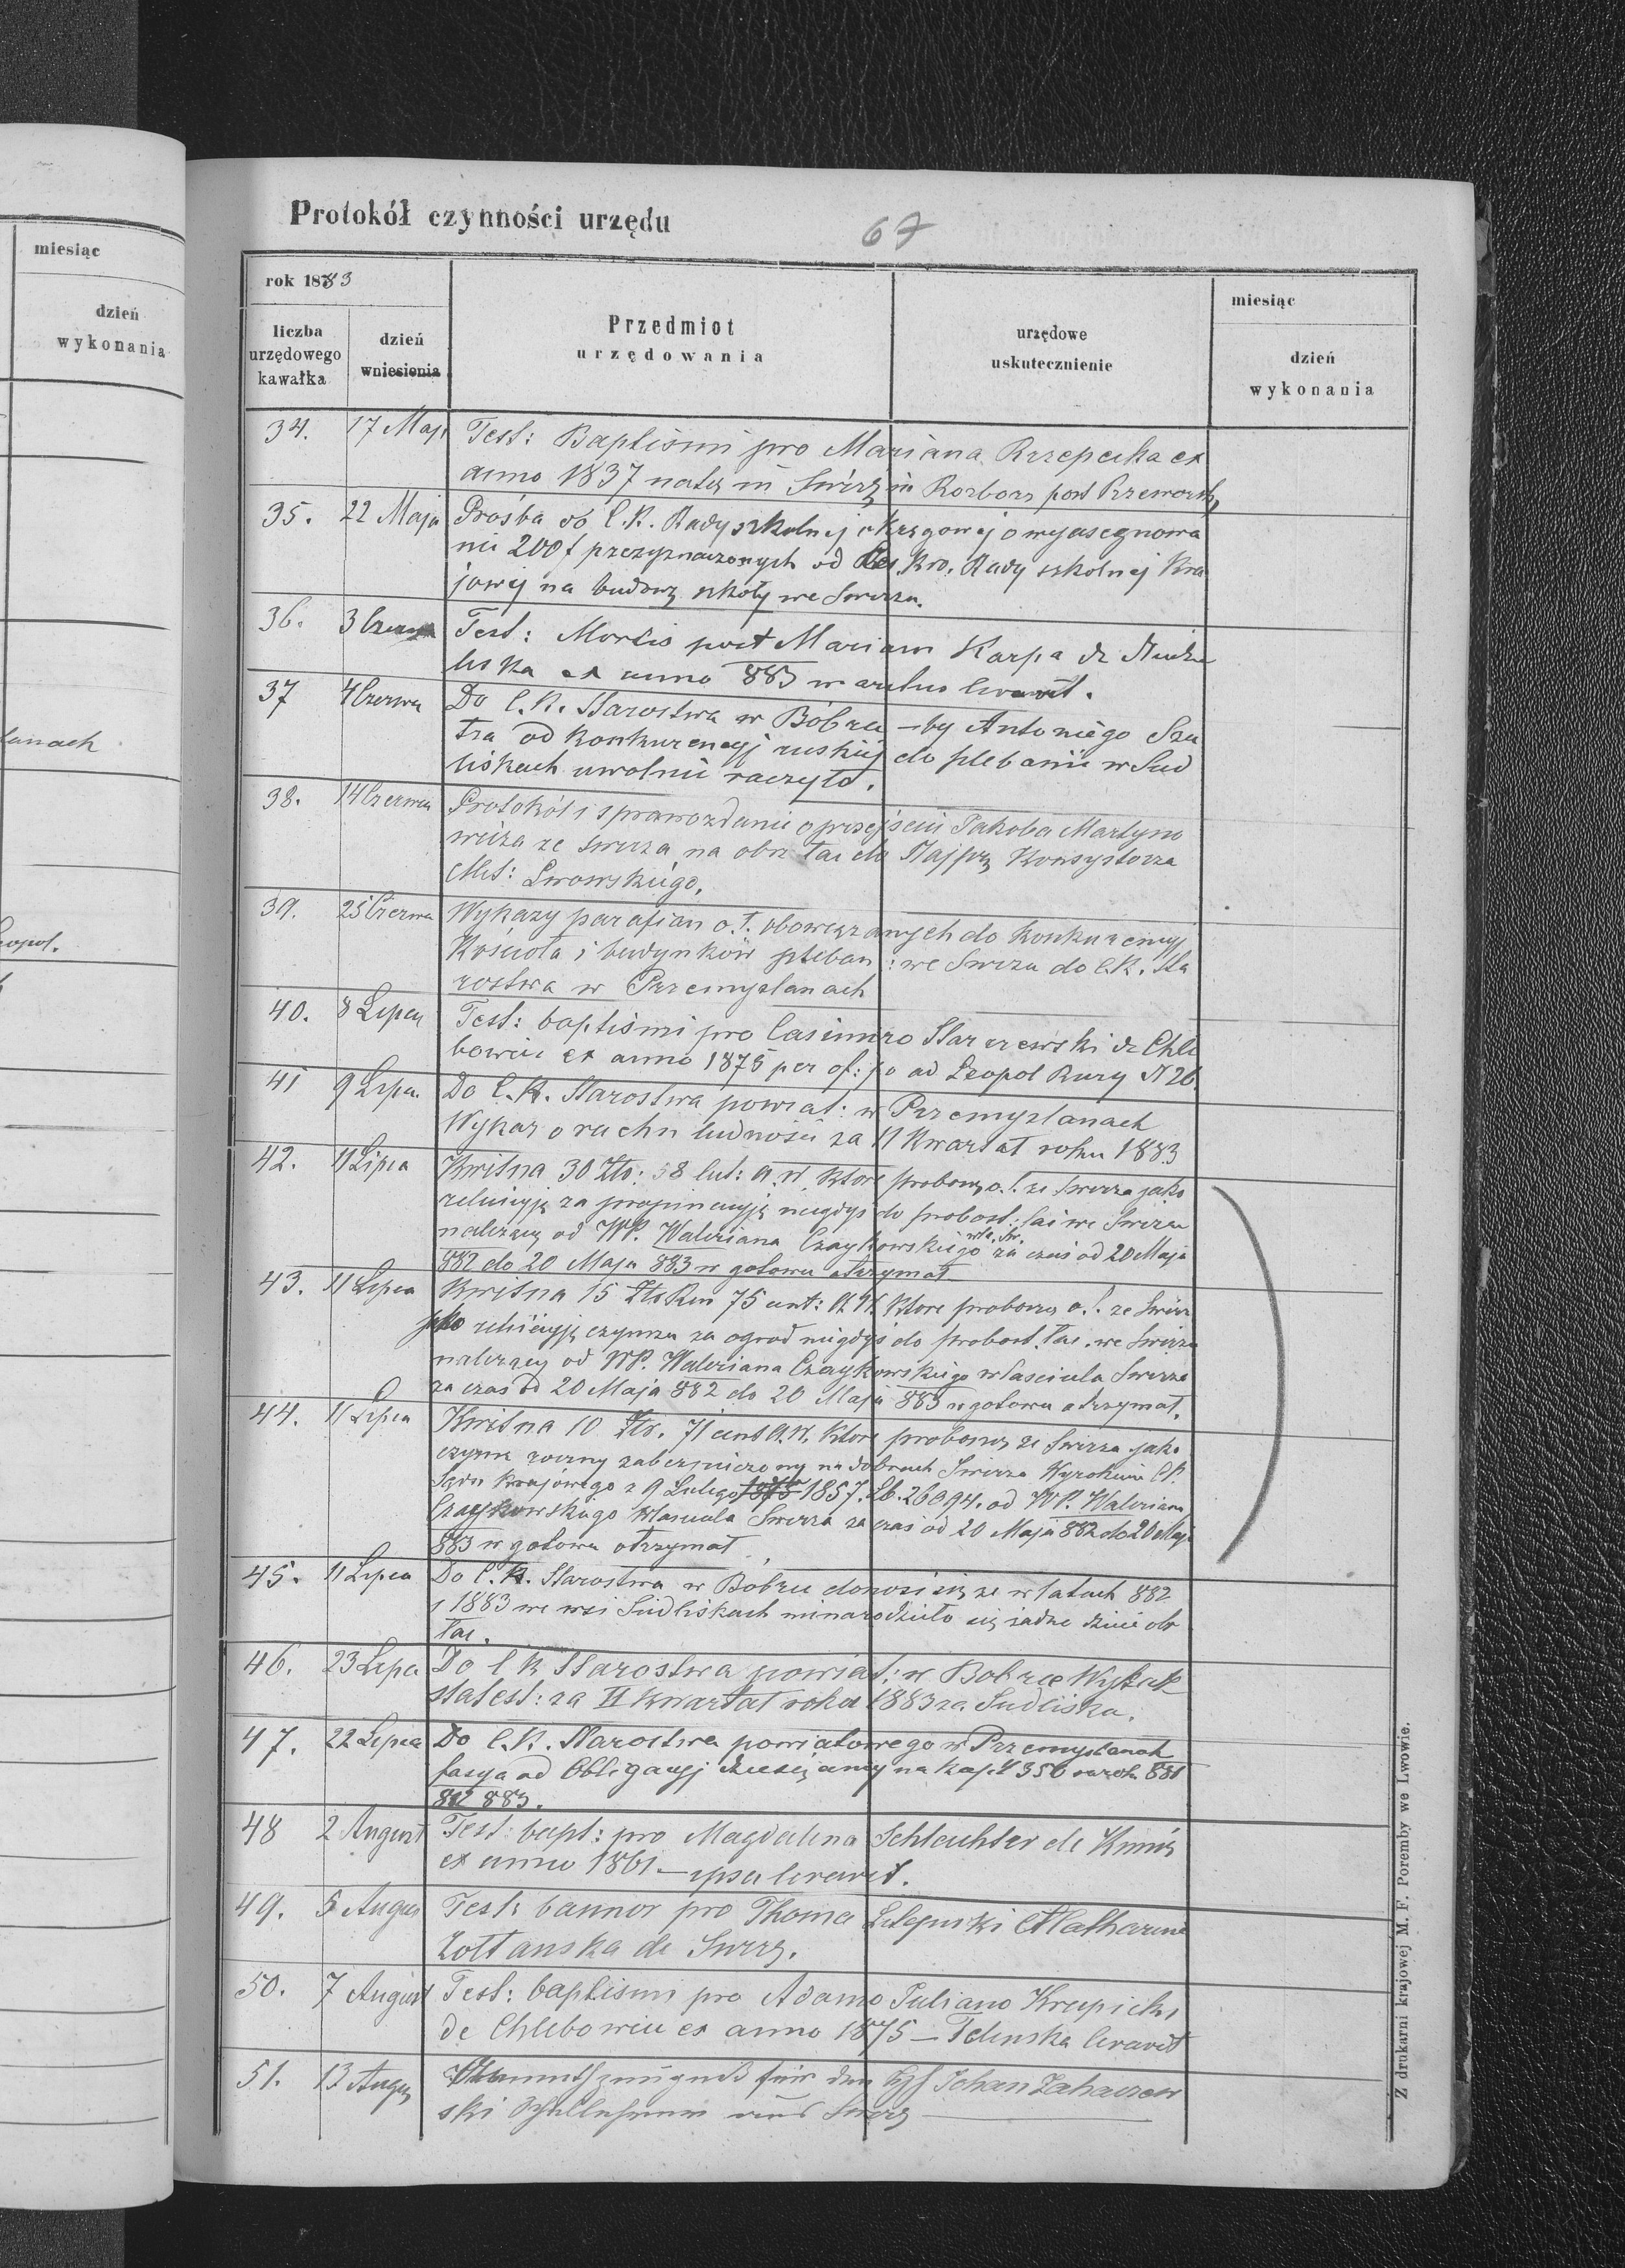 miesiąc
dzień
wykonania
Protokół czynności urzędu
67
rok 1883
liczba
urzędowego
kawałka
dzień
wniesienia
Przedmiot
urzędowania
urzędowe
uskutecznienie
miesiąc
dzień
wykonania
34. 17 Maj Test: Baptismi pro Mariana Rzepecka ex
anno 1837 nata in Swirz in Rozborz post Przeworsk
35. 22 Maja Prośba do C.K. Rady szkolnej okręgowej o wyasegnowa
nie 200 f przeznaczonych od Ces. Kro. Rady szkolnej Kra
jowej na budowę szkoły we Swirzu.
36. 3 Czerwca Test: Mortis post Mariam Karpa de
liska ex anno 883 levavit.
37 4 Czerwca Do C.K. Starostwa w Bóbrce – by Antoniego Szu
tra od konkurencyj ruskiej do plebanii w Sud
liskach uwolnić raczyło.
38. 14 Czerwca Protokół i sprawozdanie o przejściu Jakoba Martyno
wicza ze Swirza na obrz łac do Najprz Konsystorza
Met: Lwowskiego.
39. 25 Czerwca Wykazy parafian o.ł. obowiązanych do Konkurencyj
Kościoła i budynków pleban: we Swirzu do C.K. Sta
rostwa w Przemyslanach
40. 8 Lipca Test: baptismi pro Casimiro Starzewski de Chle
bowice ex anno 1875 per of: ad Leopol Rury N 26
41 9 Lipca Do C.K. Starostwa powiat: w Przemyslanach
Wykaz o ruchu ludności za II Kwartał roku 1883
42. 11 Lipca Kwit na 30 Złr: 58 cut: a.w. które probosz o.ł. ze Swirza jako
relucyję za propinacyję niegdyś do probost: łac we Swirzu
należącą od WP. Waleriana Czaykowskiego wła. Sw. za czas od 20 Maja
882 do 20 Maja 883 w gotowce otrzymał
43. 11 Lipca Kwit na 15 Złr 75 cent: a.w. które probosz o.ł. ze Swirz
jako relucyję czynszu za ogrod niegdyś do probost. łac. we Swirzu
należący od WP. Waleriana Czaykowskiego wlasciciela Swirza
za czas od 20 Maja 882 do 20 Maja 883 w gotowce otrzymał.
44. 11 Lipca Kwit na 10 Złr. 71 cent a.w. które probosz ze Swirza jako
czynsz roczny zabezpieczony na dobrach Swirza Wyrokiem CK.
Sądu Krajowego z 9 Lutego 1857. Lb. 26094. od WP. Waleriana
Czaykowskiego Wlasciciela Swirza za czas od 20 Maja 882 do 20 Maja
883 w gotowce otrzymał
45. 11 Lipca Do C.K. Starostwa w Bóbrce donosi się ze w latach 882
i 1883 we wsi Sudliskach nienarodziło się żadne dziecie obr
łac.
46. 23 Lipca Do C K Starostwa powiat: w Bobrce Wykaz
statest: za II kwartał roku 1883 za Sudliska.
47. 22 Lipca Do C.K. Starostwa powiatowego w Przemyslanach
fasya od Obligacyj na kapit 350 na rok 881
882 883.
48 2 August Test: bapt: pro Magdalena Schlachter de
ex anno 1861. – ipsa levavit.
49. 5 August Test: bannor pro Thoma Catharina
Zołtanska de Swirz.
50. 7 August Test: baptismi pro Adamo Juliano Krupicki
de Chlebowice ex anno 1875 – levavit
51. 13 Aug für den Johan Zaharzew
ski aus Swirz
Z drukarni krajowej M. F. Poremby we Lwowie.